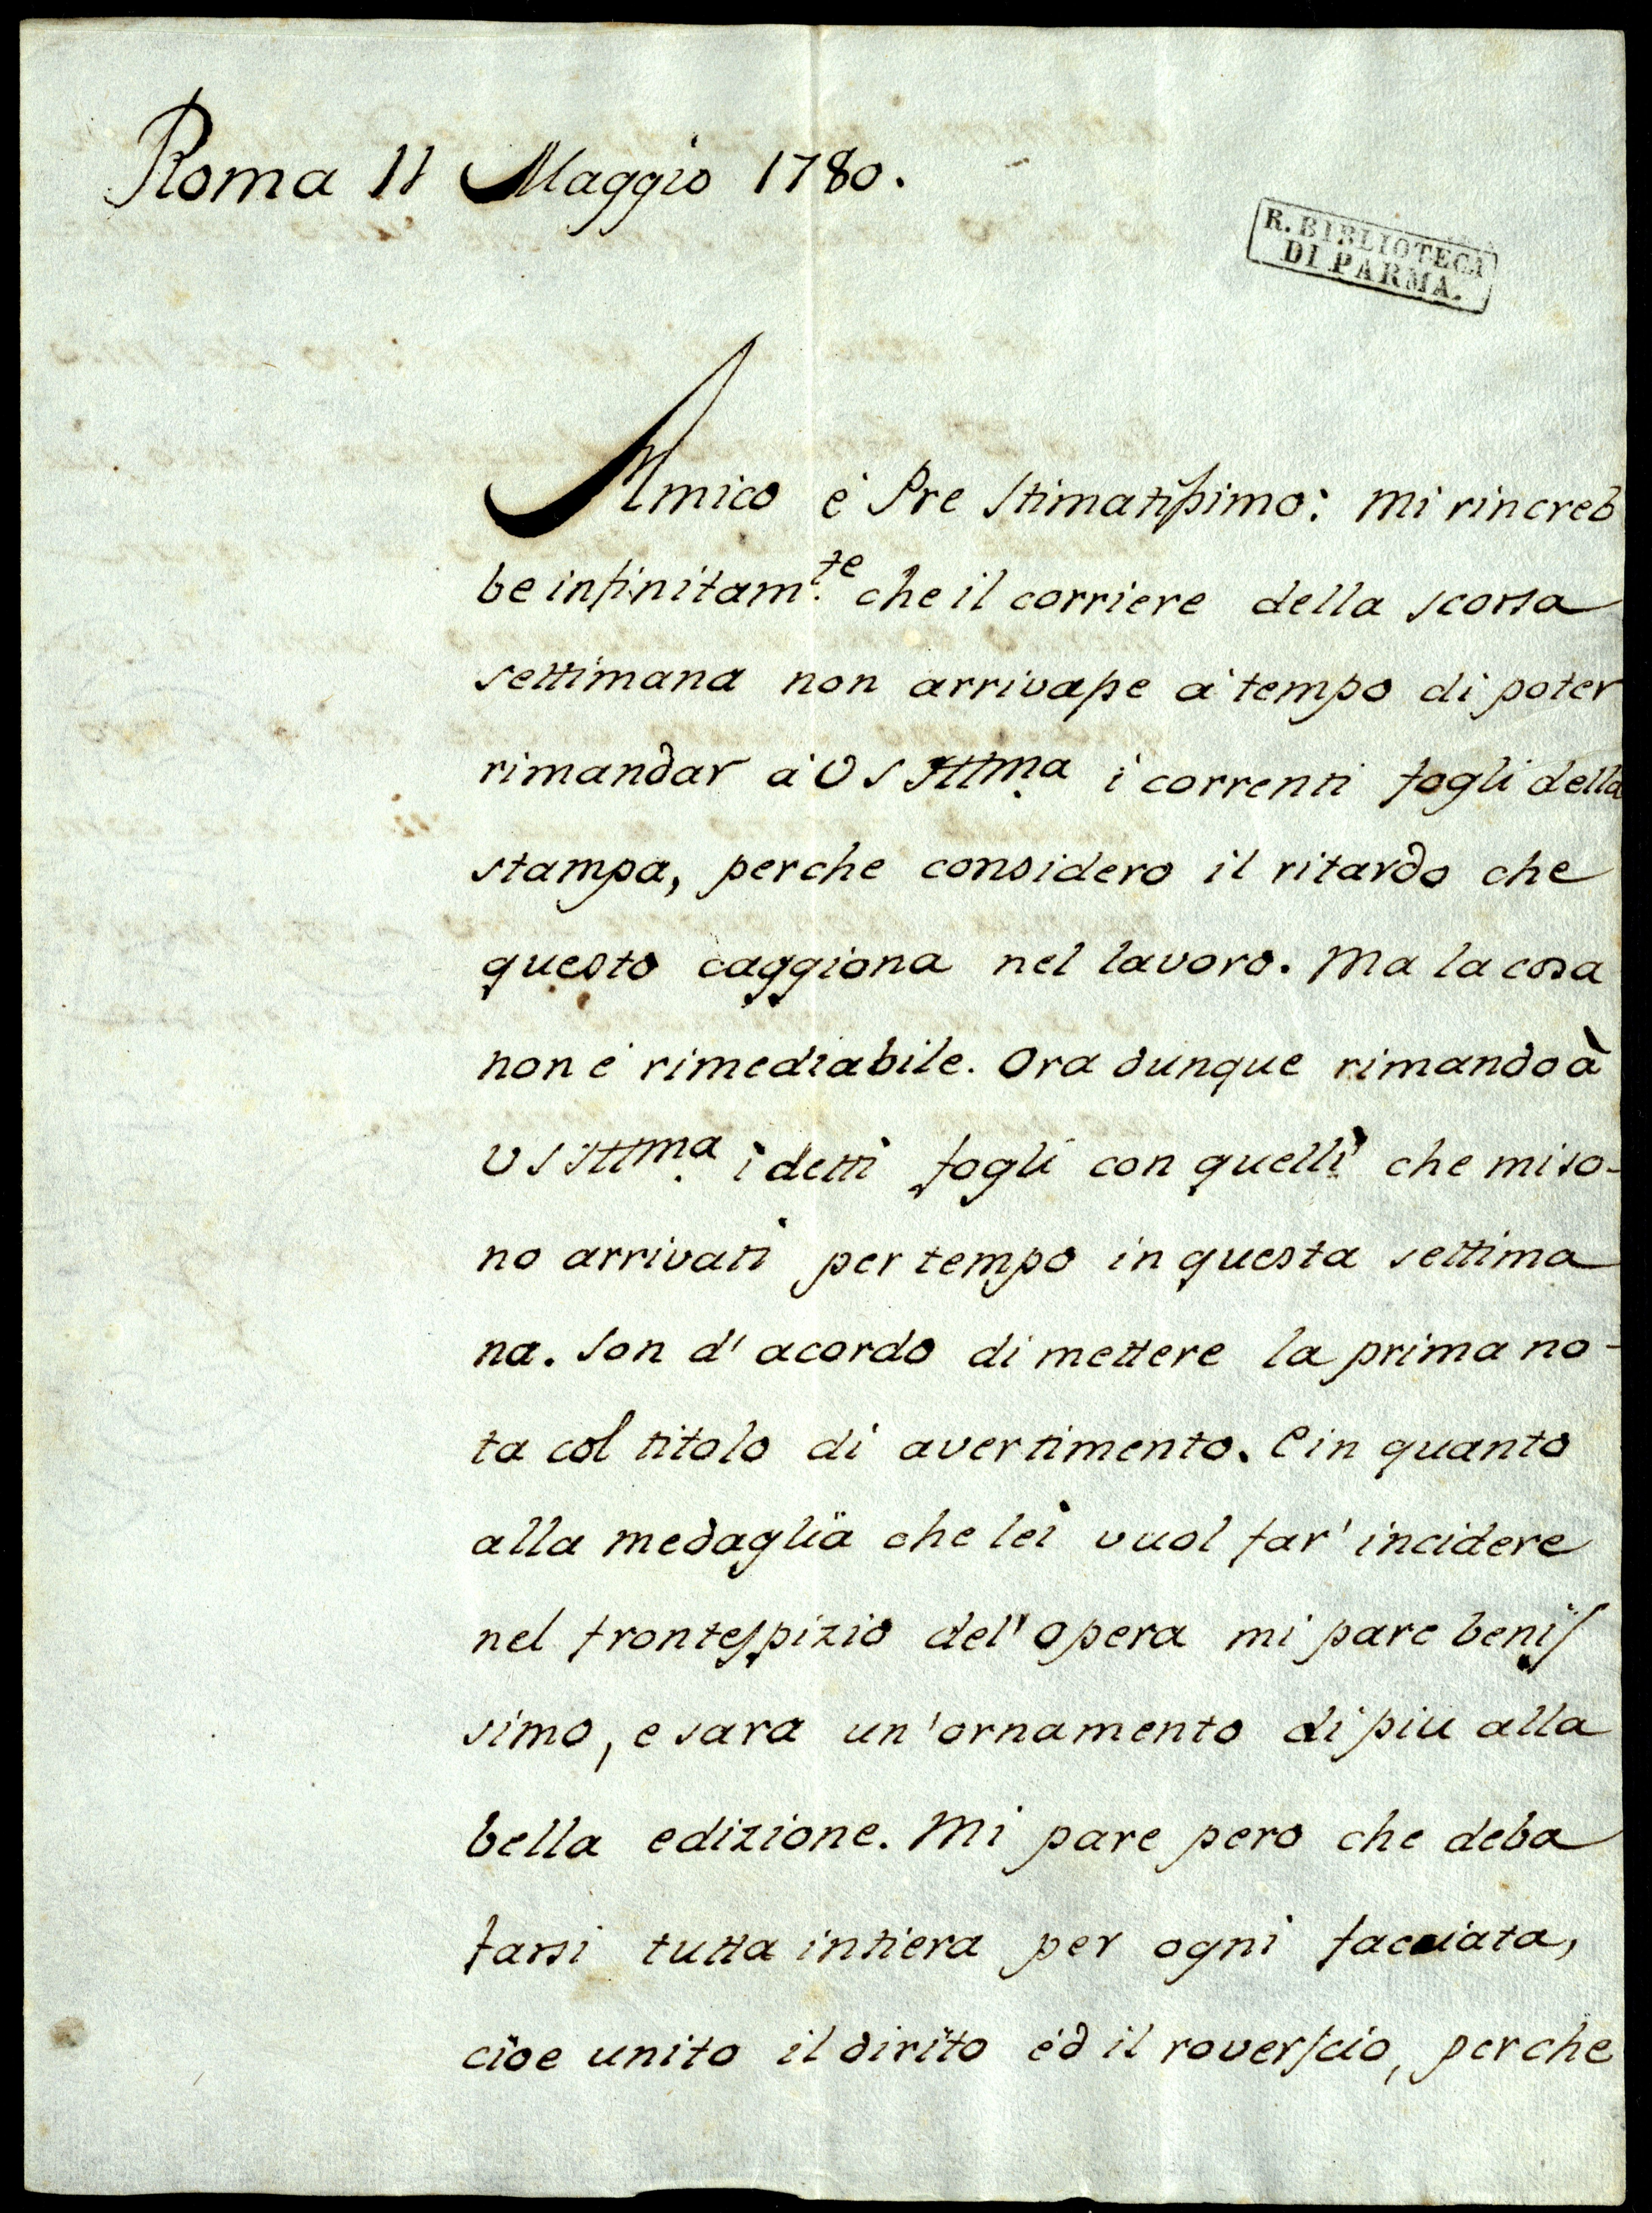 Roma 11 Maggio 1780.
R. BIBLIOTECA
DI PARMA.
Amico é Pre Stimatissimo: Mi rincreb
be infinitam.te che il corriere della scorsa
settimana non arrivasse á tempo di poter
rimandar á VS Illma i correnti fogli della
stampa, perche considero il ritardo che
questo caggiona nel lavoro. Ma la cosa
non é rimediabile. Ora dunque rimando à
VS Illma i detti fogli con quelli che mi so-
no arrivati per tempo in questa settima
na. Son d'acordo di mettere la prima no-
ta col titolo di avertimento. E in quanto
alla medaglia che lei vuol far' incidere
nel frontespizio del'opera mi pare benis
simo, e sara un'ornamento di piu alla
bella edizione. Mi pare pero che deba
farsi tutta intiera per ogni facciata,
cioe unito il dirito éd il roverscio, perche